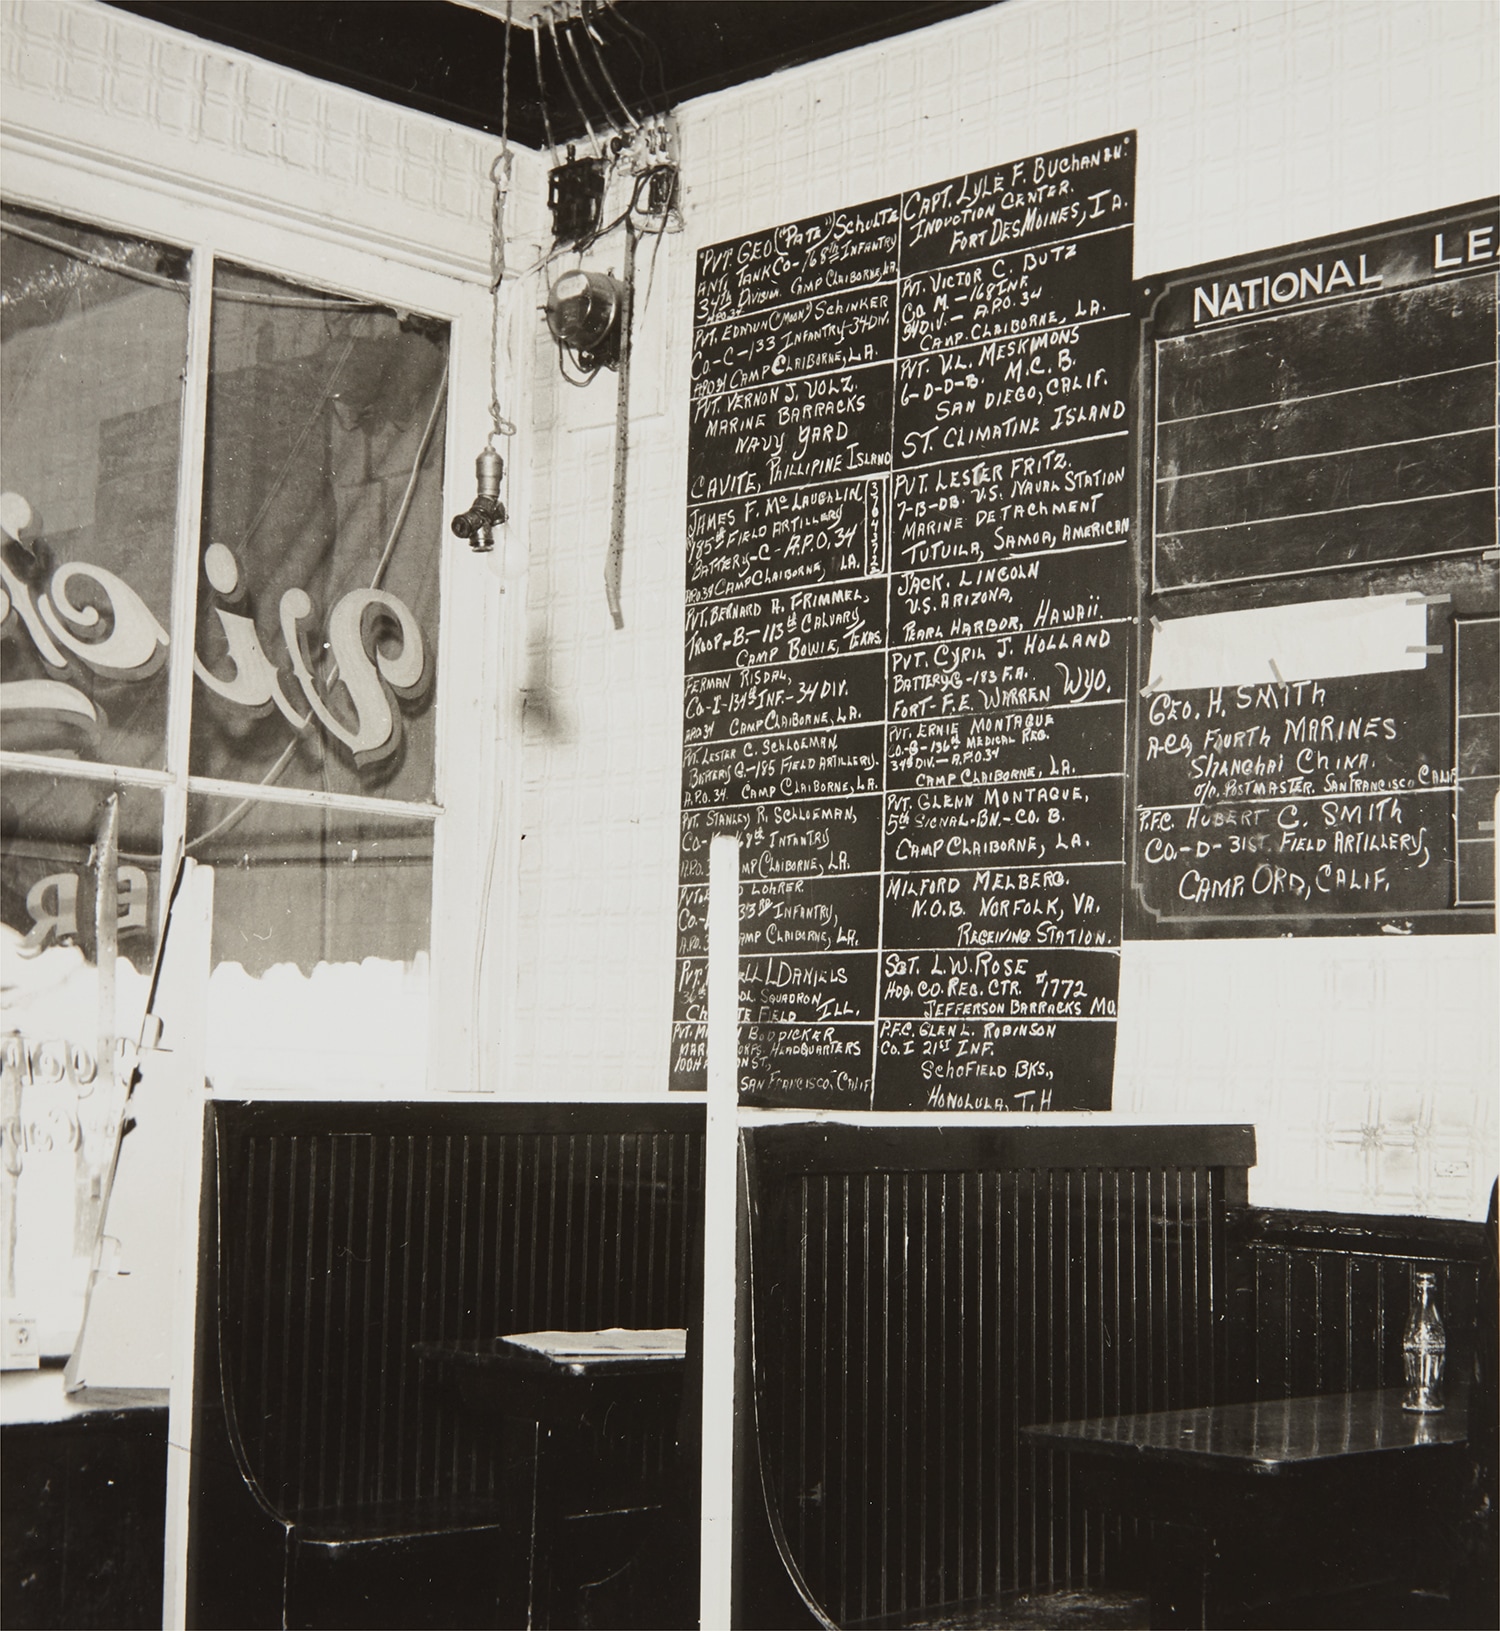 "PVT. GEO ("PATE") SCHULTE
ANTI TANK CO- 168th INFANTRY
34TH DIVISION. CAMP CLAIBORNE, LA.
A.P.O. 34.
PVT. EDMUN ("MOON") SCHINKER
CO.-C-133 INFANTRY-34 DIV.
APO 34 CAMP CLAIBORNE, LA.
PVT. VERNON J. VOLZ.
MARINE BARRACKS
NAVY YARD
CAVITE, PHILLIPINE ISLAND
JAMES F. McLAUGHLIN.
185th FIELD ARTILLERY
BATTERY-C- A.P.O, 34
A.P.O. 34 CAMP CLAIBORNE, LA.
PVT. BERNARD A. FRIMMEL,
TROOP-B.-113th CALVARY
CAMP BOWIE, TEXAS
FERMAN RISDAL,
CO-I-134th INF.-34 DIV.
APO 34 CAMP CLAIBORNE, LA.
PVT. LESTER C. SCHLOEMAN,
BATTERY G.-185 FIELD ARTILLERY.
A.P.O. 34. CAMP CLAIBORNE, LA.
PVT. STANLEY R. SCHLOEMAN,
CO- 168th INFANTRY
A.P.O. 3 MP CLAIBORNE, LA.
PVT. D LOHRER
CO.- 33RD INFANTRY,
A.P.O. 3 AMP CLAIBORNE, LA.
PVT. ELL L DANIELS
36th OL. SQUADRON
CH TE FIELD ILL.
PVT. M BODDICKER
MAR ORPS. HEADQUARTERS
100 H ON ST,
SAN FRANCISCO, CALIF
CAPT. LYLE F. BUCHANAN."
INDUCTION CENTER.
FORT DES MOINES, IA.
PVT. VICTOR C. BUTZ
CO M.-168 INF.
34 DIV.- A.P.O. 34
CAMP. CLAIBORNE, LA.
PVT. V.L. MESKIMONS
6-D-D-B. M.C.B.
SAN DIEGO, CALIF.
ST. CLIMATINE ISLAND
PVT. LESTER FRITZ.
7-B-DB. U.S. NAVAL STATION
MARINE DETACHMENT
TUTUILA, SAMOA, AMERICAN
JACK. LINCOLN
U.S. ARIZONA,
PEARL HARBOR, HAWAII.
PVT. CYRIL J. HOLLAND
BATTERY G-183 F.A.
FORT-F.E. WARREN WYO.
PVT. ERNIE MONTAGUE
CO.-B-136th MEDICAL REG.
34th DIV.-A.P.O. 34
CAMP CLAIBORNE, LA.
PVT. GLENN MONTAGUE,
5th SIGNAL-BN.-CO. B.
CAMP CLAIBORNE, LA.
MILFORD MELBERG.
N.O.B. NORFOLK, VA.
RECEIVING STATION.
SGT. L.W. ROSE
HDQ. CO. REC. CTR. #1772
JEFFERSON BARRACKS MO.
P.F.C. GLEN L. ROBINSON
CO. I 21ST INF.
SCHOFIELD BKS.,
HONOLULA, T.H
NATIONAL LE
GEO. H. SMITH
A-CO, FOURTH MARINES
SHANGHAI CHINA.
o/c. POSTMASTER. SAN FRANCISCO CALIF
P.F.C. HUBERT C. SMITH
CO.-D-31ST. FIELD ARTILLERY,
CAMP. ORD, CALIF.